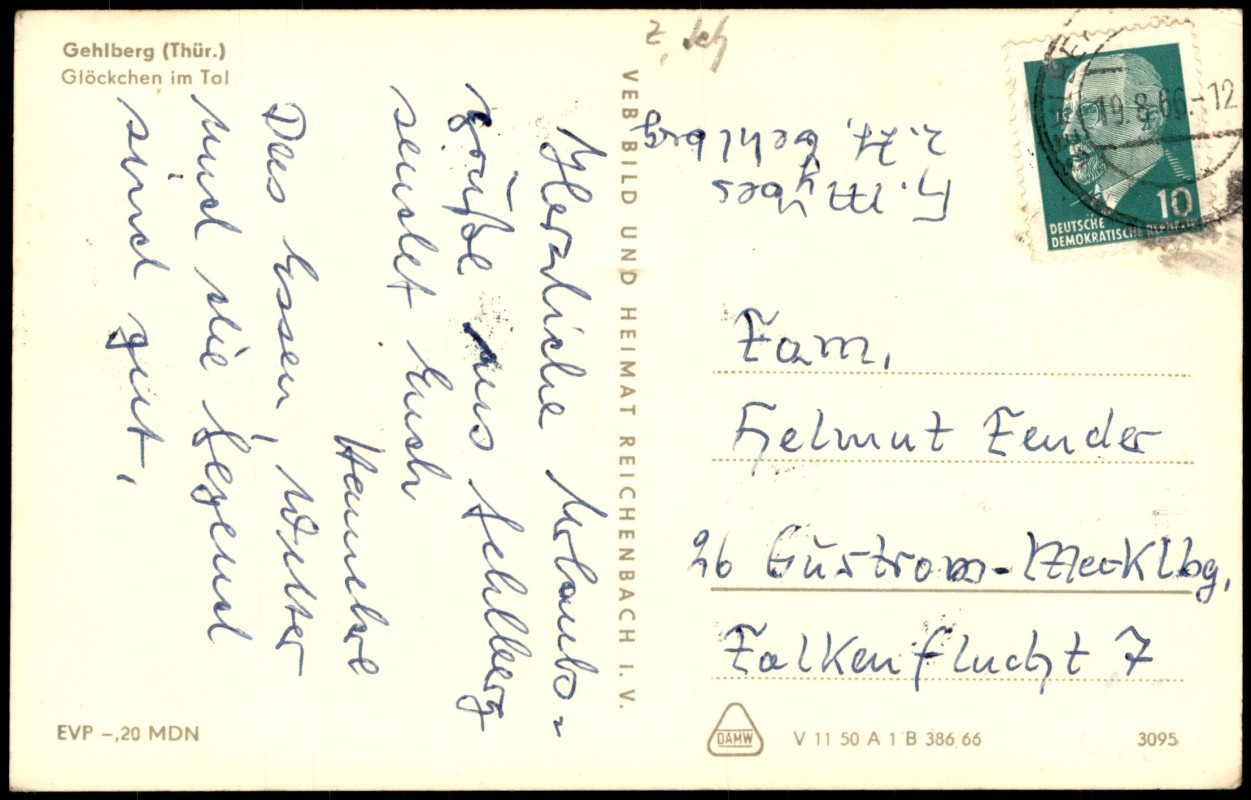 Gehlberg (Thür.)
Glöckchen im Tal
Herzliche Urlaubs-
grüße aus Gehlberg
sendet Euch
Hannchen
Das Essen, Wetter
und die Gegend
sind gut.
VEB BILD UND HEIMAT REICHENBACH I. V.
z. Zt. Gehlberg
19.8.66.-12
10
DEUTSCHE
DEMOKRATISCHE REPUBLIK
Fam.
Helmut Fender
26 Güstrow-Mecklbg.
Falkenflucht 7
EVP -,20 MDN
DAMW
V 11 50 A 1 B 386 66
3095